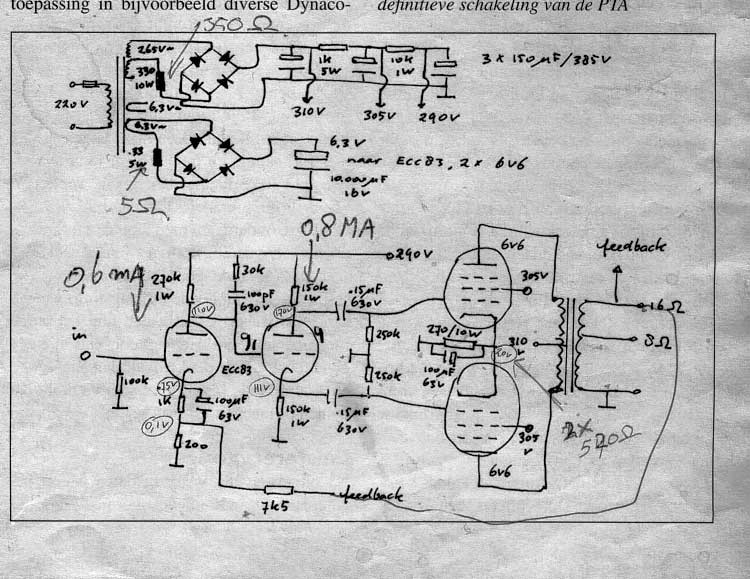 toepassing in bijvoorbeeld diverse Dynaco-
definitieve schakeling van de PTA
350 Ω
265V~
330
10W
220V
6,3V~
6,3V~
.33
5W
5Ω
1k
5W
10k
1W
3 x 150µF/385V
310V
305V
290V
6,3V
naar ECC83, 2x 6V6
10.000µF
16V
0,6 mA
0,8 MA
290V
270k
1W
30k
100pF
630V
150k
1W
.15µF
630V
110V
170V
in
100k
ECC83
g1
.75V
1K
100µF
63V
0,1V
200
111V
150k
1W
.15µF
630V
250k
250k
270/10W
100µF
63V
20V
6V6
305V
310
V
305
V
6V6
feedback
16Ω
8Ω
2x
520Ω
7k5
feedback